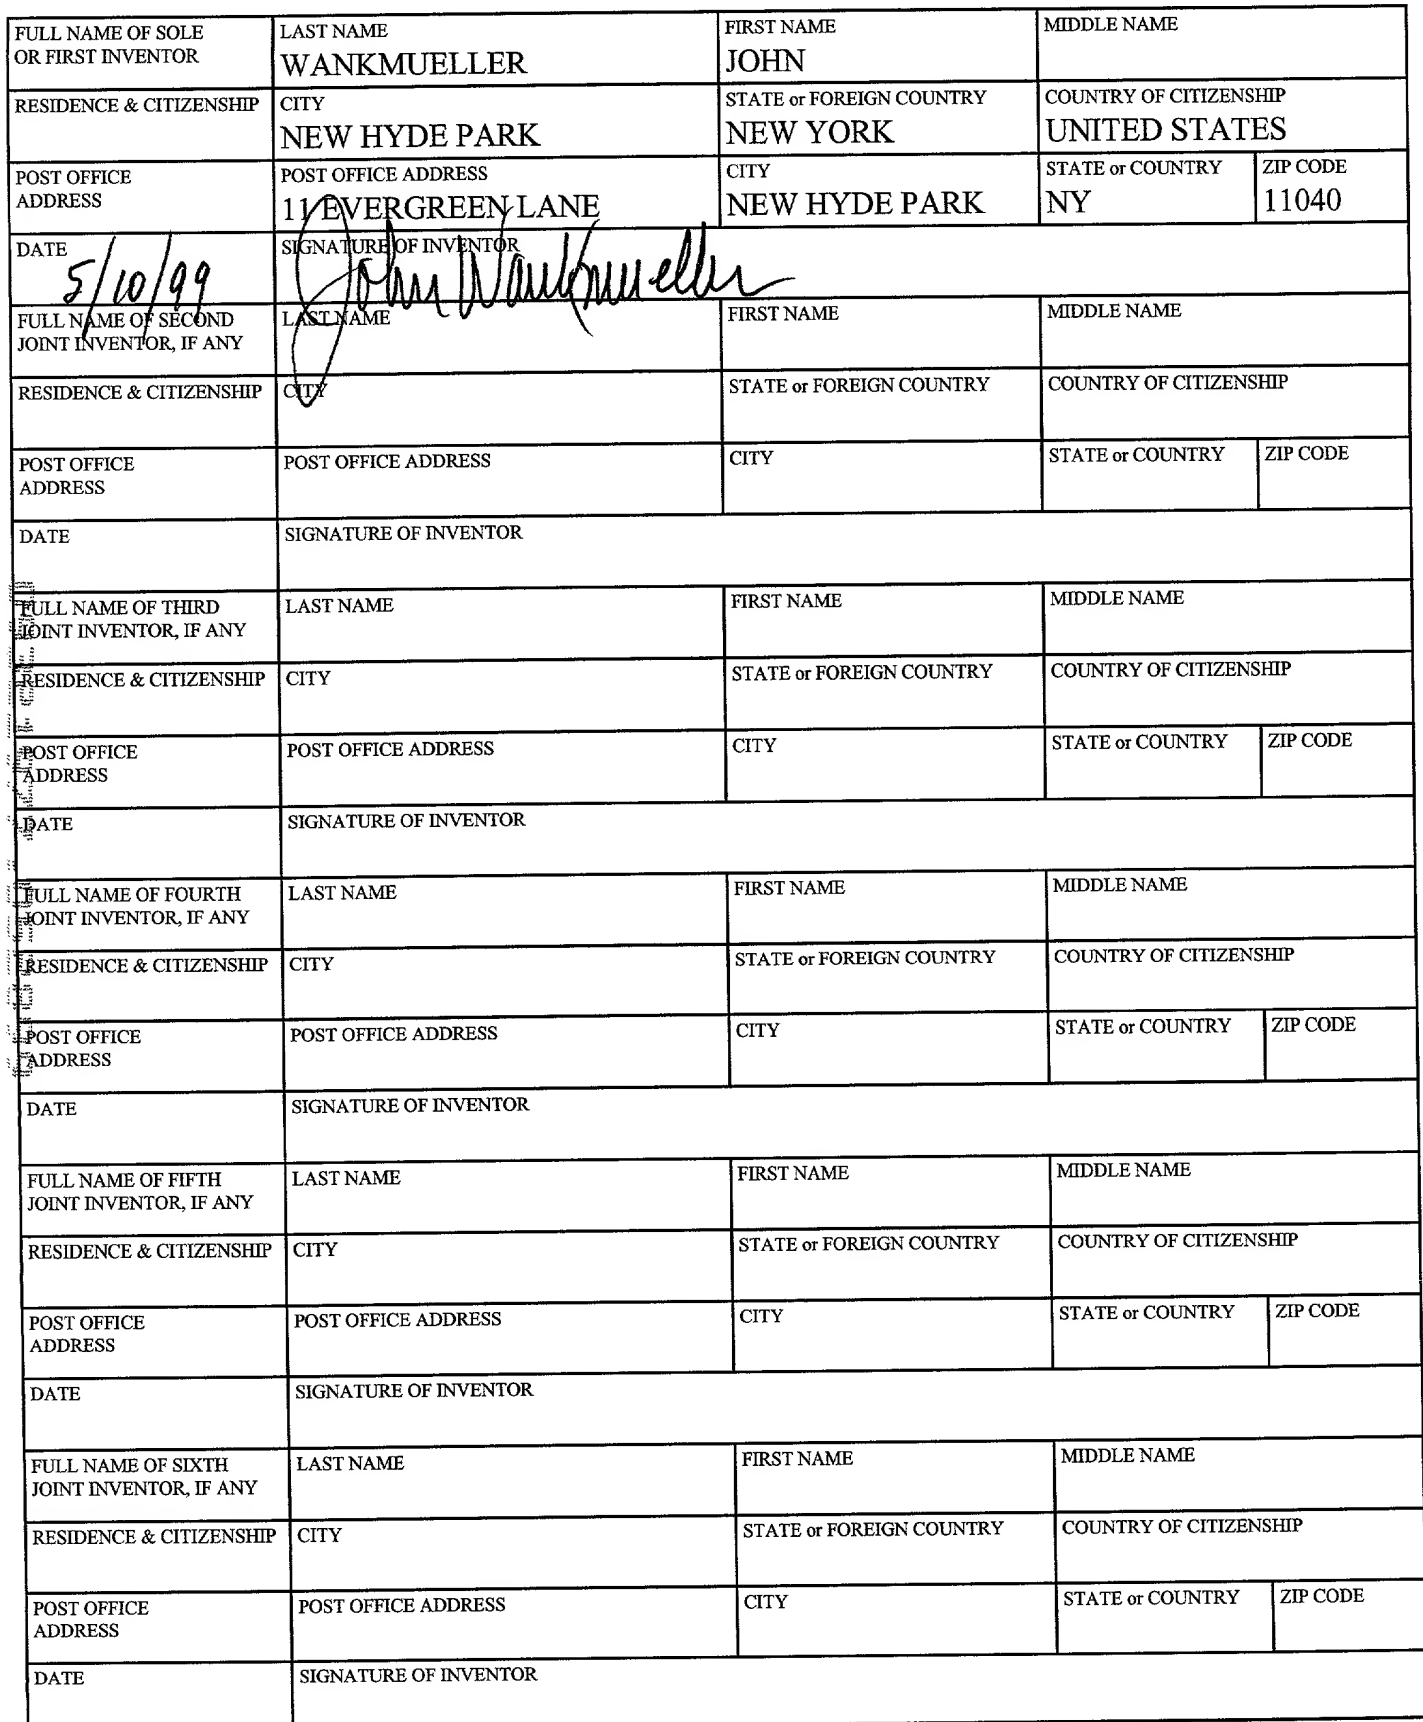 FULL NAME OF SOLE OR FIRST INVENTOR LAST NAME FIRST NAME MIDDLE NAME
WANKMUELLER JOHN
RESIDENCE & CITIZENSHIP CITY STATE or FOREIGN COUNTRY COUNTRY OF CITIZENSHIP
NEW HYDE PARK NEW YORK UNITED STATES
POST OFFICE ADDRESS POST OFFICE ADDRESS CITY STATE or COUNTRY ZIP CODE
11 EVERGREEN LANE NEW HYDE PARK NY 11040
DATE SIGNATURE OF INVENTOR
5/10/99 John Wankmueller
FULL NAME OF SECOND JOINT INVENTOR, IF ANY LAST NAME FIRST NAME MIDDLE NAME
RESIDENCE & CITIZENSHIP CITY STATE or FOREIGN COUNTRY COUNTRY OF CITIZENSHIP
POST OFFICE ADDRESS POST OFFICE ADDRESS CITY STATE or COUNTRY ZIP CODE
DATE SIGNATURE OF INVENTOR
FULL NAME OF THIRD JOINT INVENTOR, IF ANY LAST NAME FIRST NAME MIDDLE NAME
RESIDENCE & CITIZENSHIP CITY STATE or FOREIGN COUNTRY COUNTRY OF CITIZENSHIP
POST OFFICE ADDRESS POST OFFICE ADDRESS CITY STATE or COUNTRY ZIP CODE
DATE SIGNATURE OF INVENTOR
FULL NAME OF FOURTH JOINT INVENTOR, IF ANY LAST NAME FIRST NAME MIDDLE NAME
RESIDENCE & CITIZENSHIP CITY STATE or FOREIGN COUNTRY COUNTRY OF CITIZENSHIP
POST OFFICE ADDRESS POST OFFICE ADDRESS CITY STATE or COUNTRY ZIP CODE
DATE SIGNATURE OF INVENTOR
FULL NAME OF FIFTH JOINT INVENTOR, IF ANY LAST NAME FIRST NAME MIDDLE NAME
RESIDENCE & CITIZENSHIP CITY STATE or FOREIGN COUNTRY COUNTRY OF CITIZENSHIP
POST OFFICE ADDRESS POST OFFICE ADDRESS CITY STATE or COUNTRY ZIP CODE
DATE SIGNATURE OF INVENTOR
FULL NAME OF SIXTH JOINT INVENTOR, IF ANY LAST NAME FIRST NAME MIDDLE NAME
RESIDENCE & CITIZENSHIP CITY STATE or FOREIGN COUNTRY COUNTRY OF CITIZENSHIP
POST OFFICE ADDRESS POST OFFICE ADDRESS CITY STATE or COUNTRY ZIP CODE
DATE SIGNATURE OF INVENTOR